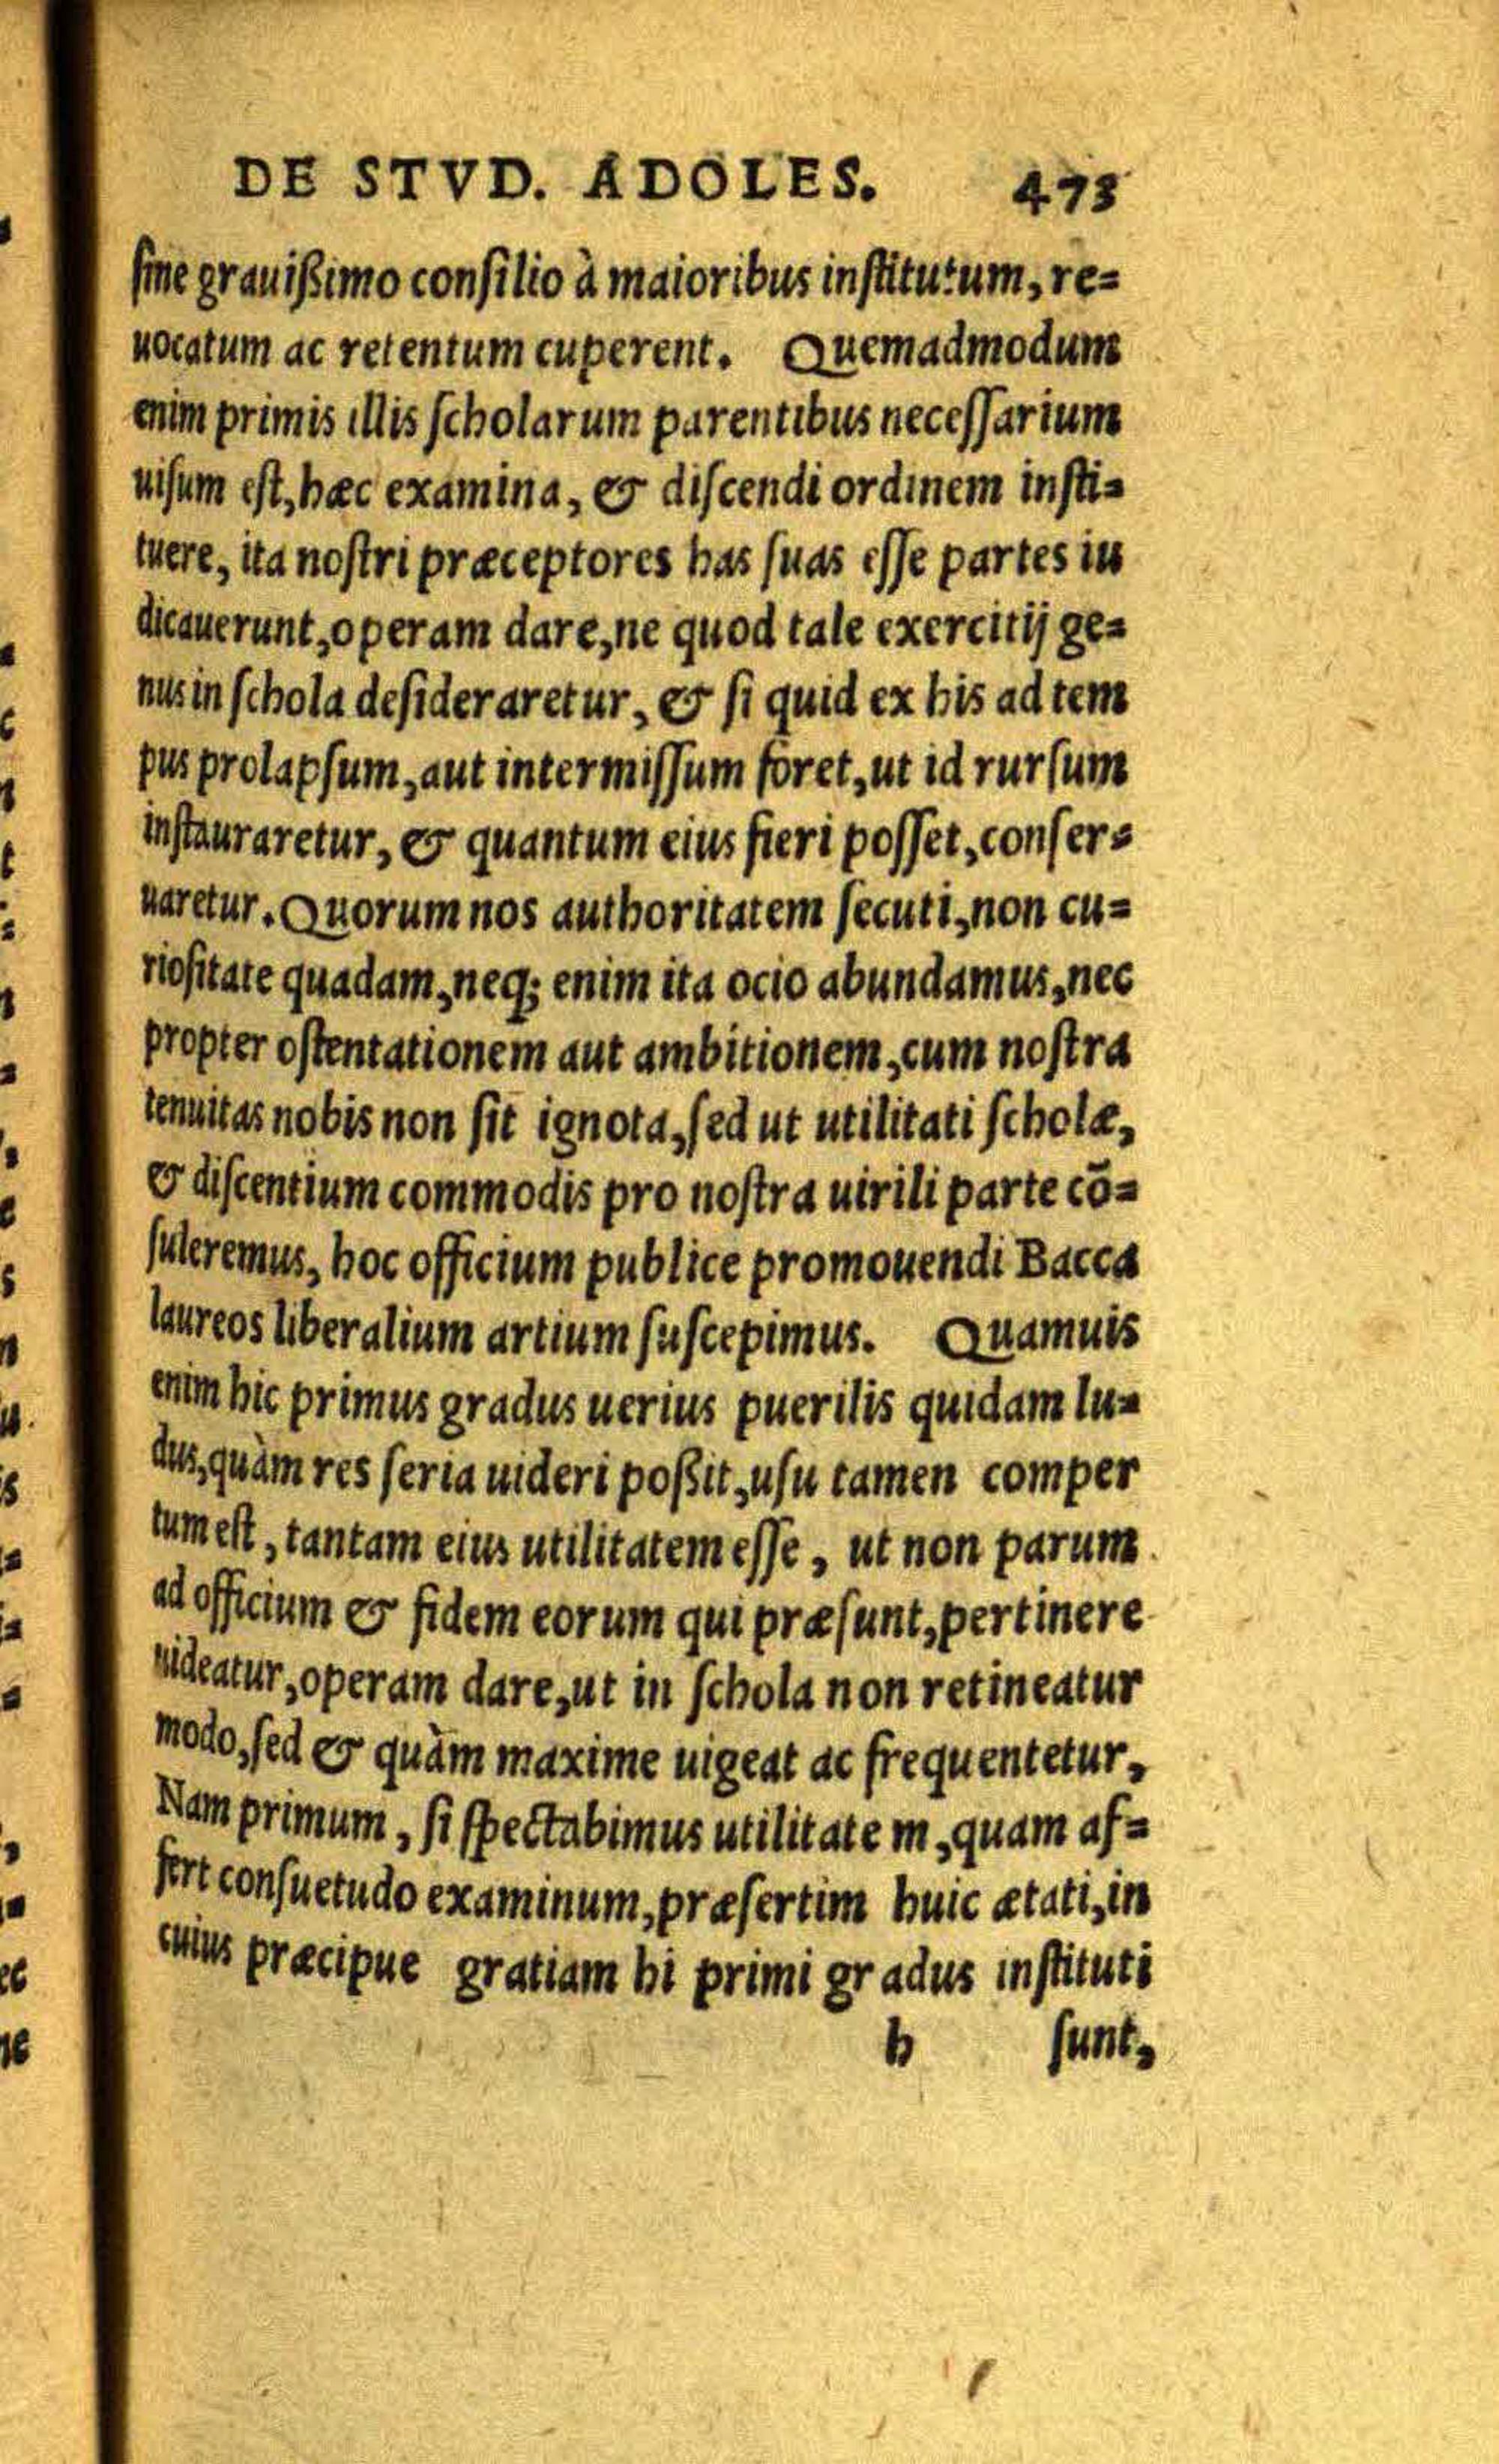 DE STVD. ADOLES. 473
ſine grauißimo conſilio à maioribus inſtitutum, re=
uocatum ac retentum cuperent. Quemadmodum
enim primis illis ſcholarum parentibus neceſſarium
uiſum eſt, hæc examina, & diſcendi ordinem inſti=
tuere, ita noſtri præceptores has ſuas eſſe partes iu
dicauerunt, operam dare, ne quod tale exercitij ge=
nus in ſchola deſideraretur, & ſi quid ex his ad tem
pus prolapſum, aut intermiſſum foret, ut id rurſum
inſtauraretur, & quantum eius fieri poſſet, conſer=
uaretur. Quorum nos authoritatem ſecuti, non cu=
rioſitate quadam, neq; enim ita ocio abundamus, nec
propter oſtentationem aut ambitionem, cum noſtra
tenuitas nobis non ſit ignota, ſed ut utilitati ſcholæ,
& diſcentium commodis pro noſtra uirili parte cō=
ſuleremus, hoc officium publice promouendi Bacca
laureos liberalium artium ſuſcepimus. Quamuis
enim hic primus gradus uerius puerilis quidam lu=
dus, quàm res ſeria uideri poßit, uſu tamen comper
tum eſt, tantam eius utilitatem eſſe, ut non parum
ad officium & fidem eorum qui præſunt, pertinere
uideatur, operam dare, ut in ſchola non retineatur
modo, ſed & quàm maxime uigeat ac frequentetur,
Nam primum, ſi ſpectabimus utilitate m, quam af=
fert conſuetudo examinum, præſertim huic ætati, in
cuius præcipue gratiam hi primi gradus inſtituti
h ſunt,